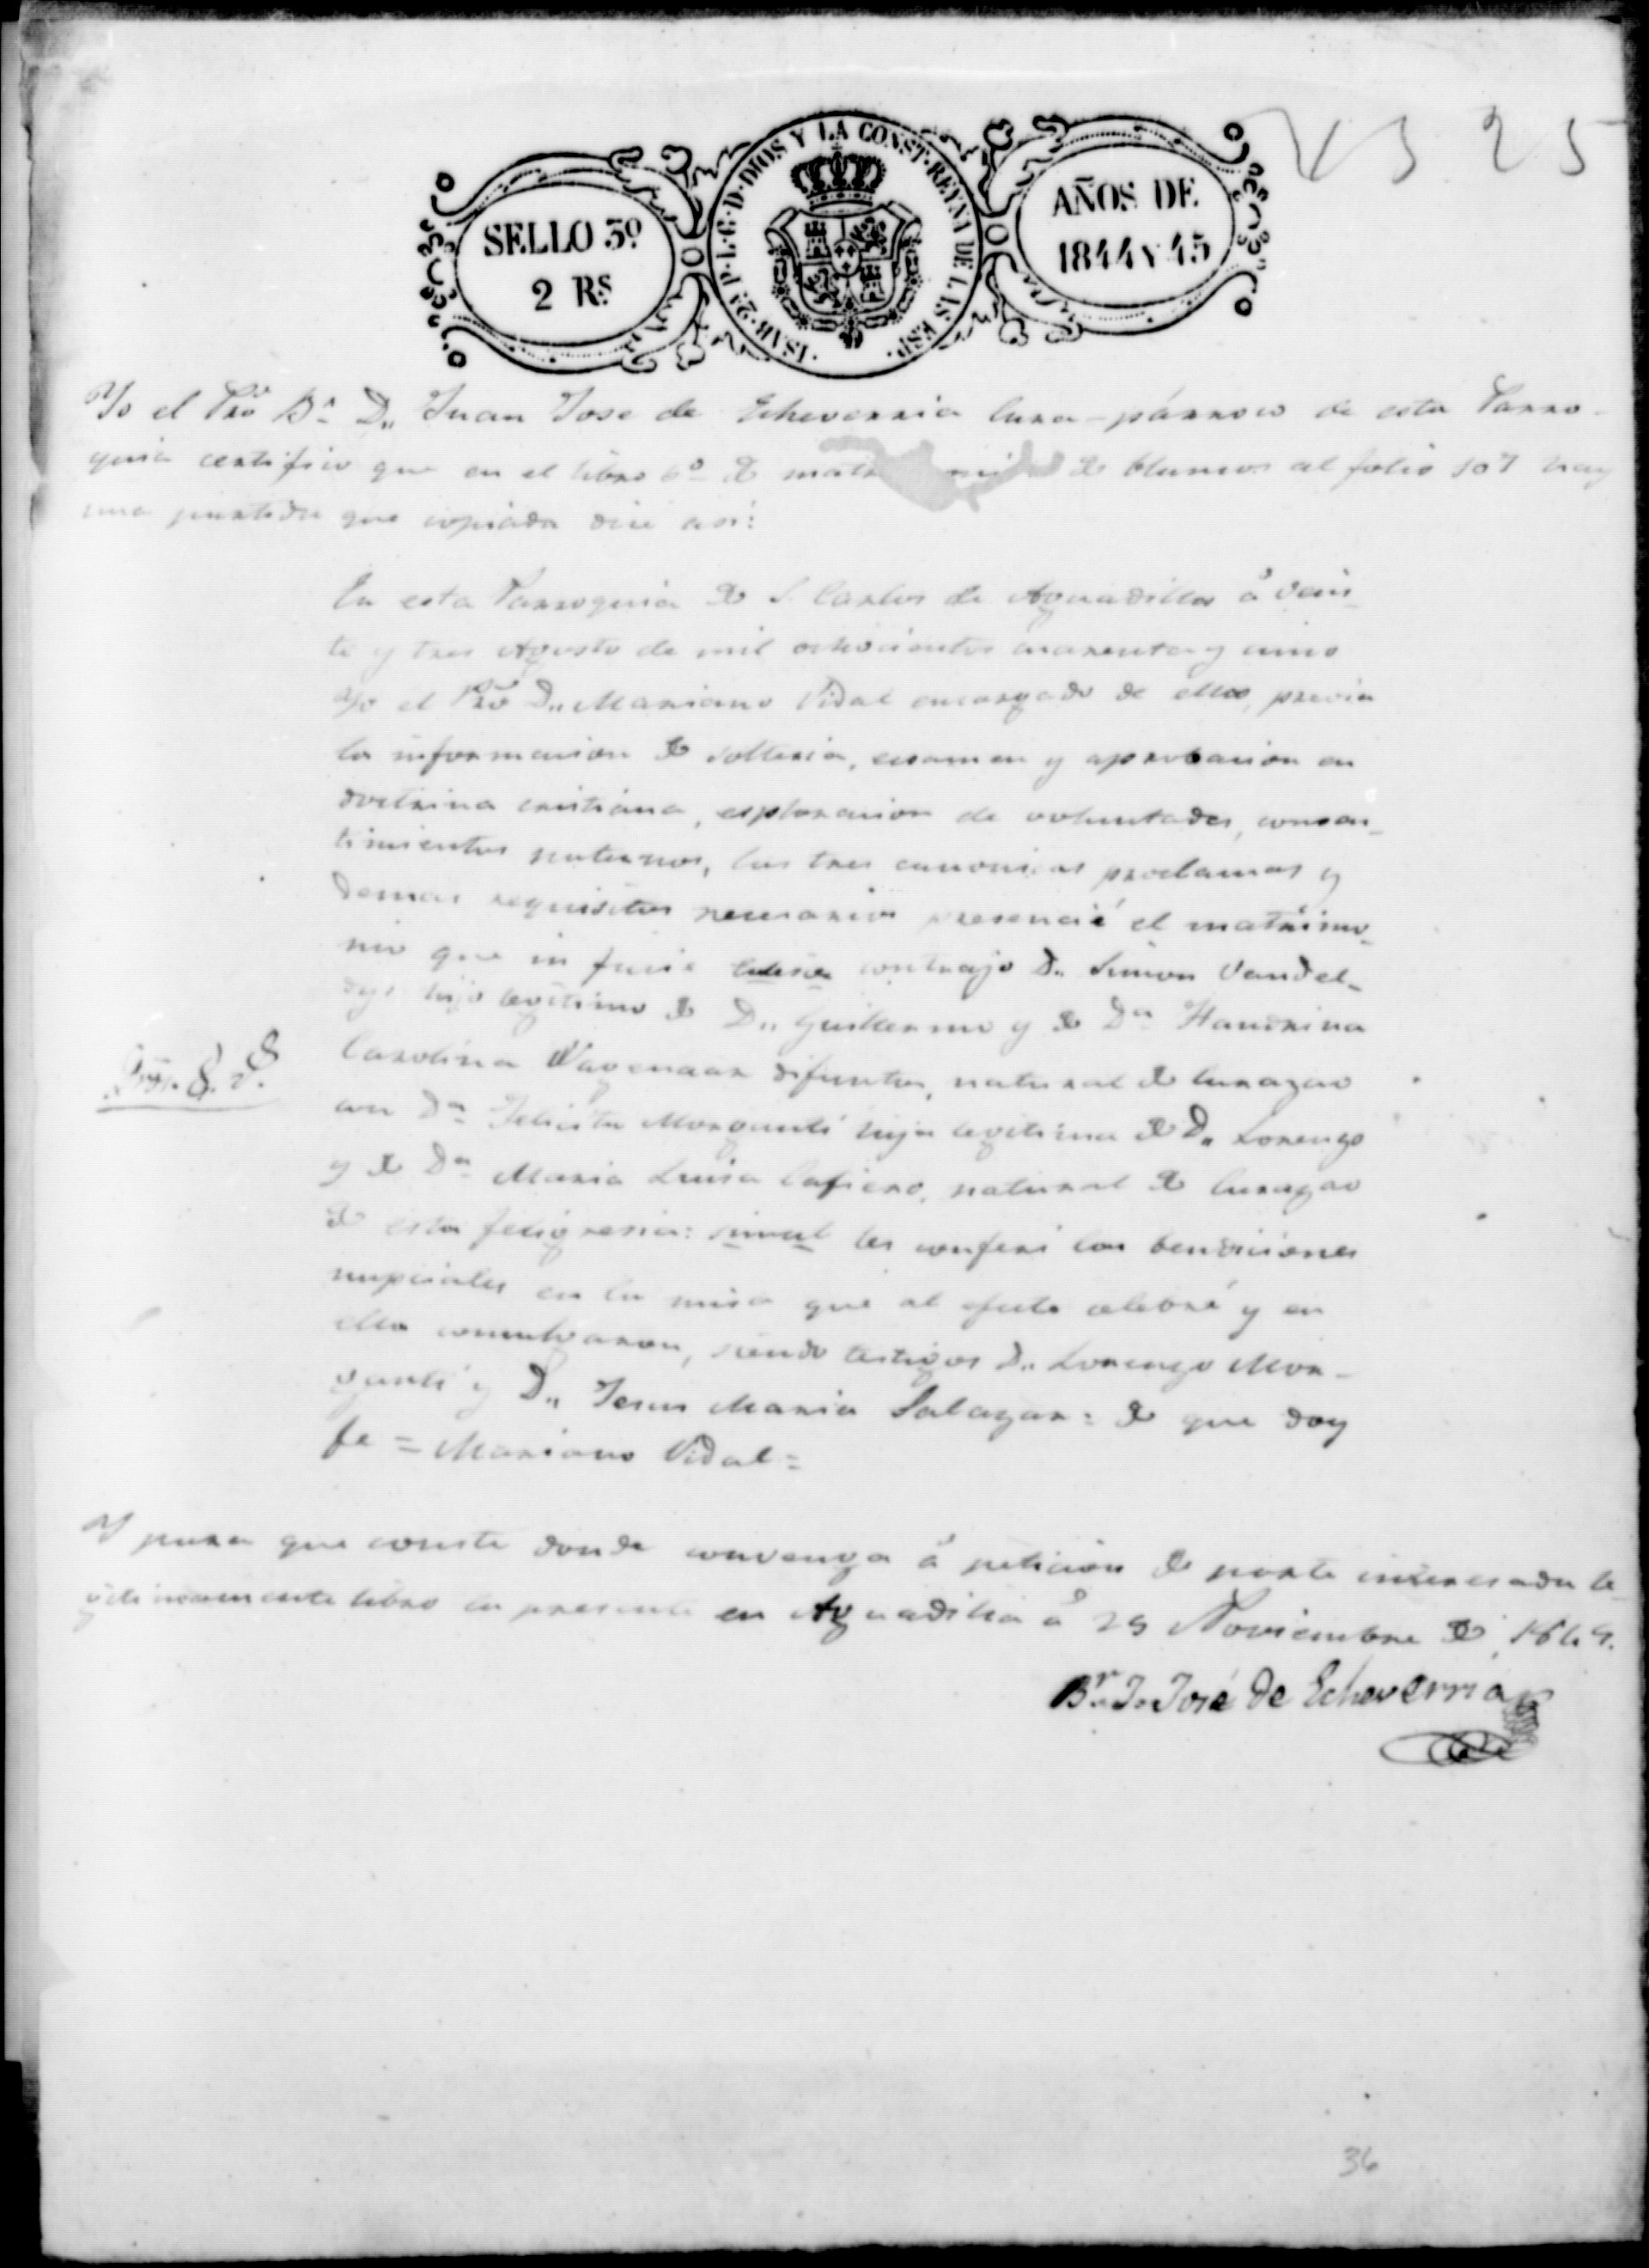 4325
SELLO 3º
2 Rs
ISAB. 2ª P. L. G. D. DIOS Y LA CONST. REYNA DE LAS ESP.
AÑOS DE
1844 Y 45
Yo el Pro Br D. Juan Jose de Echeverria Cura-párroco de esta Parro-
quia certifico que en el libro 6º de matrimonios de blancos al folio 107 hay
una partida que copiada dice asi:
En esta Parroquia de S. Carlos de Aguadilla á vein-
te y tres Agosto de mil ochocientos cuarenta y cinco
Yo el Pro D. Mariano Vidal encargado de ella, previa
la informacion de solteria, ecsamen y aprobacion en
doctrina cristiana, esploracion de voluntades, consen-
timientos paternos, las tres canonicas proclamas y
demas requisitos necesarios presencié el matrimo-
nio que in facie eclesie contrajo D. Simon Vandel-
dys hijo legitimo de D. Guillermo y de Da Handrina
Carolina Wagenaar difuntos, natural de Curazao
con Da Felicita Morganti hija legitima de D. Lorenzo
y de Da Maria Luisa Cafiero, natural de Curazao
de esta feligresia: simul les conferi las bendiciones
nupciales en la misa que al efecto celebré y en
ella comulgaron, siendo testigos D. Lorenzo Mor-
ganti y D. Jesus Maria Salazar: de que doy
fe = Mariano Vidal =
Y para que conste donde convenga á peticion de parte interesada le-
gitimamente libro la presente en Aguadilla á 25 Noviembre de
Br. J. José de Echeverria
36